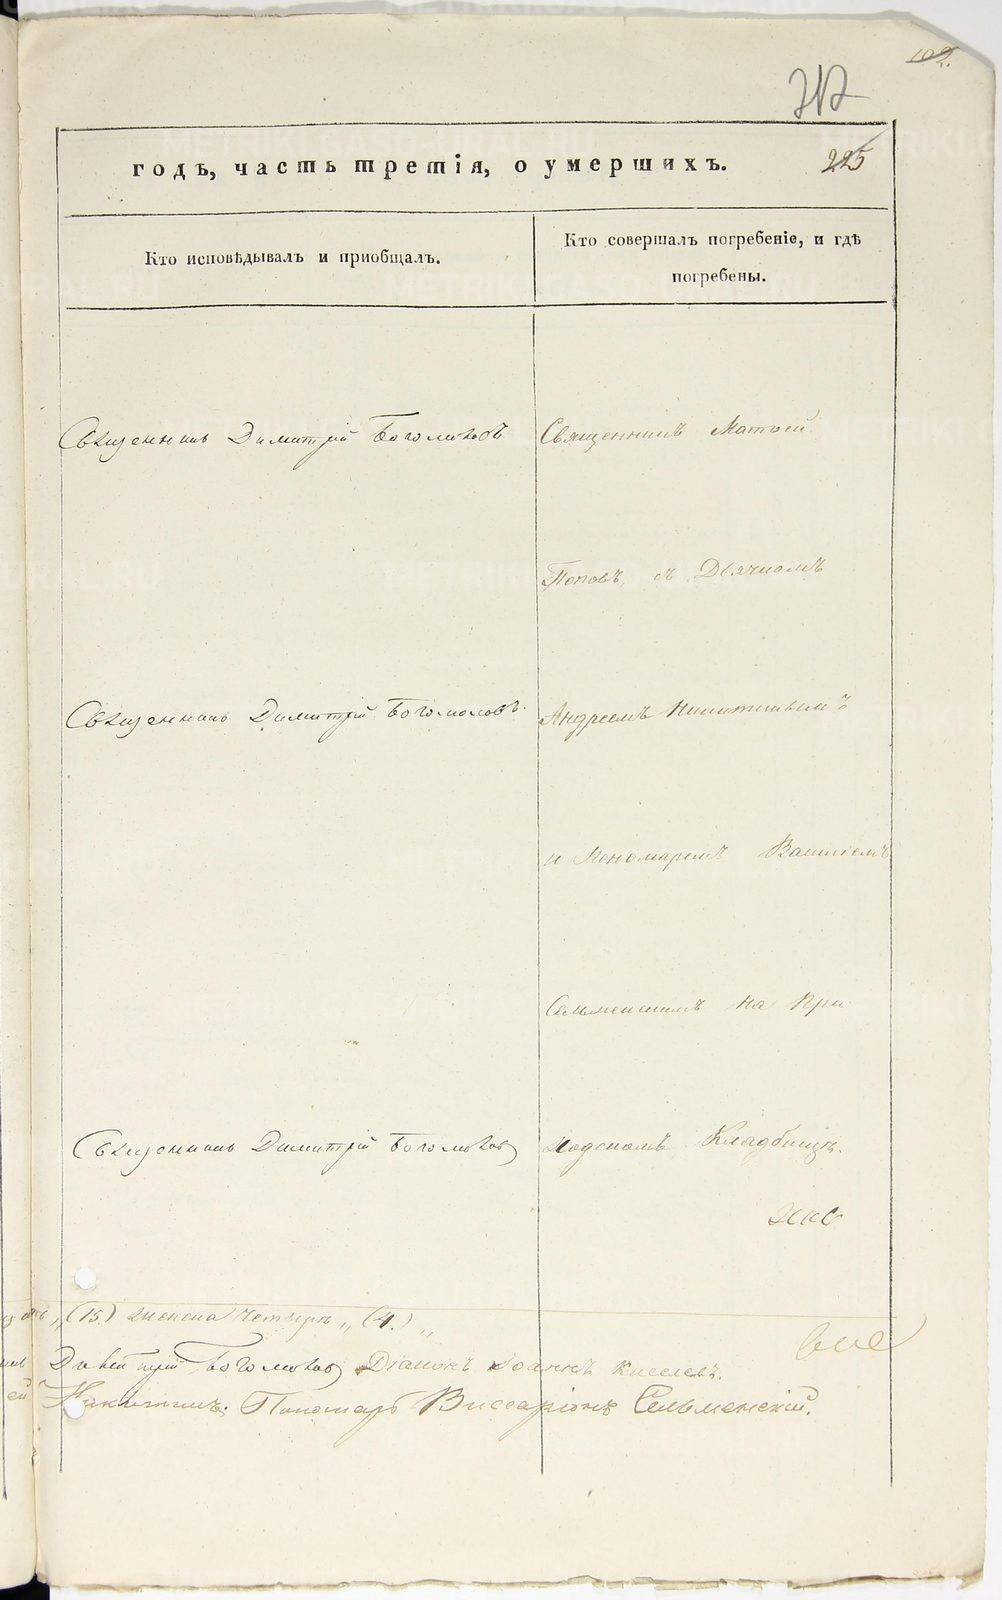 102.
212
225
годъ, часть третія, о умершихъ.
Кто исповѣдывалъ и пріобщалъ.
Кто совершалъ погребеніе, и гдѣ
погребены.
Священникъ Димитрій Боголюбовъ
Священникъ Матѳей
Поповъ, съ Дьячкомъ
Священникъ Димитрій Боголюбовъ.
Андреемъ Никитинымъ
и Пономаремъ
Сельменскимъ на При
Священникъ Димитрій Боголюбовъ
ходскомъ Кладбищѣ.
(15.) женска четыре „ (4.) „
Димитрій Боголюбовъ Діаконъ Іоаннъ Киселевъ.
Никитинъ. Пономарь Виссаріонъ Сельменскій.
METRIKI.GASO-URAL.RU